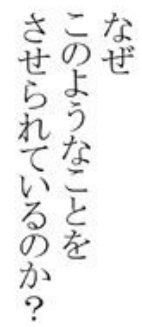 なぜ
このようなことを
させられているのか？